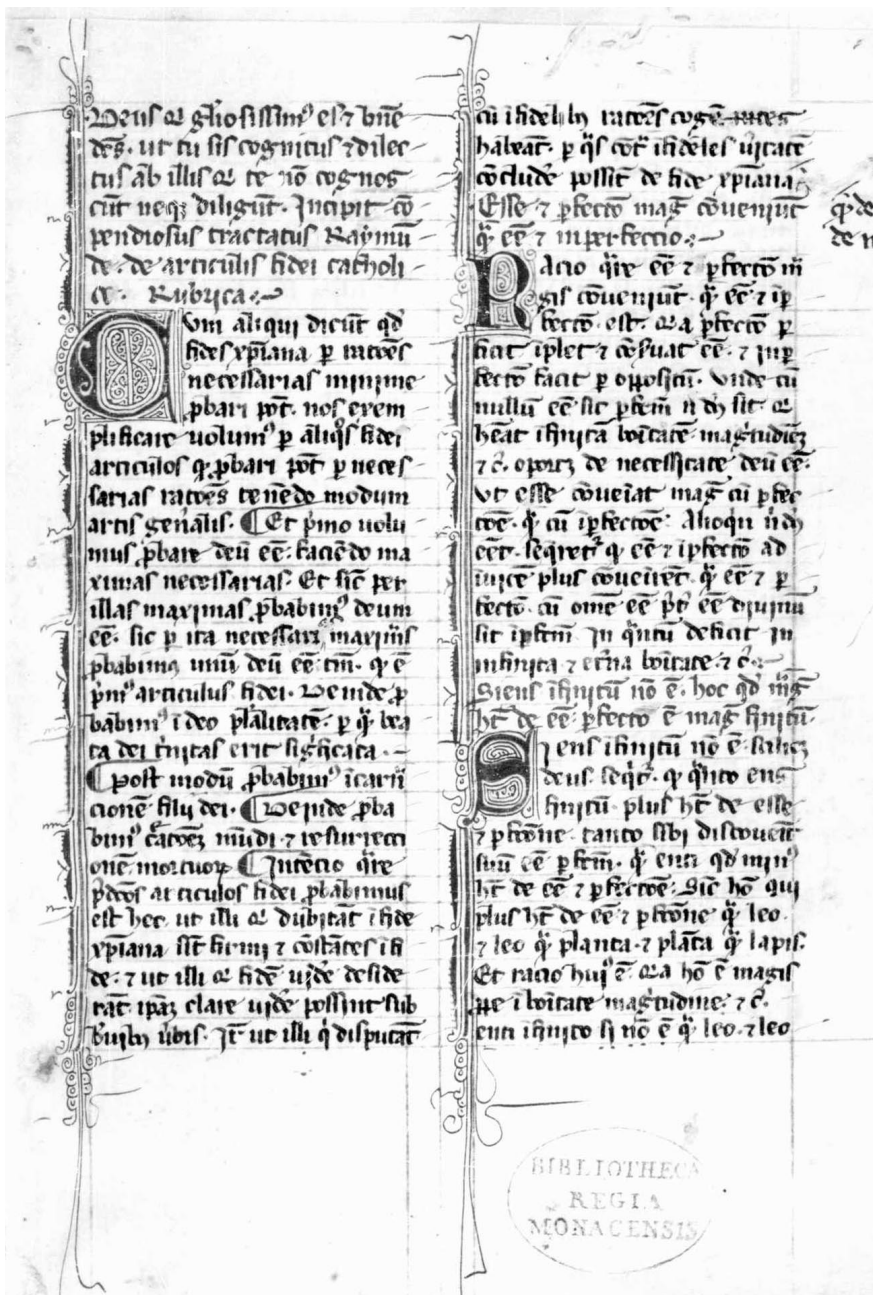 Deus q̄ gl̓iosissimꝰ es ⁊ bn̄e
dc̄s. ut tu sis cognitus ⁊ dilec
tus ab illis q̄ te nō cognos
cūt neqꝫ diligūt. Incipit cō
pendiosus tractatus Raymū
de. de articulis fidei catholi
ce. Rubrica.
Cum aliqui dicūt qd̓
fides xp̄iana ꝑ rac̄oēs
necessarias minime
ꝓbari pōt. nos exem
plificare uolumꝰ ꝑ aliqͦs fidei
articulos q̓ ꝓbari pōt ꝑ neces
sarias rac̄oēs tenēdo modum
artis gen̄alis. ¶ Et p̓mo uolu
mus ꝓbare deū eē. faciēdo ma
ximas necessarias. Et sic̄ per
illas maximas ꝓbabimꝰ deum
eē. sic ꝑ ita necessarias maximas
ꝓbabimꝰ unū deū eē tm̄. q̓ ē
p̓mꝰ articulus fidei. Deinde ꝓ
babimꝰ ī deo pl̓alitatē. ꝑ q̄ bea
ta dei t̓nitas erit sig̓ficata.
¶ post modū ꝓbabimꝰ īcar̄
cionē filij dei. ¶ Deinde ꝓba
bimꝰ c̓ac̄oēꝫ mūdi ⁊ resurrecti
onē mortuoꝝ ¶ Intēcio q̓re
p̓dc̄os articulos fidei ꝓbabimus
est hec. ut illi q̄ dubitāt ī fide
xp̄iana sīt firmi ⁊ cōstātes ī fi
de. ⁊ ut illi q̄ fidē uid̓e deside
rāt. ip̄aꝫ clare uid̓e possint sub
b̓uibꝫ ūbis. Jt̄ ut illi q̓ disputāt
cū īfidelibꝫ rac̄oēs cogē
habeāt. ꝑ q̓s cōt̓ īfideles ūitatē
cōclud̓e possīt de fide xp̄iana.
Esse ⁊ ꝑfectō mag̓ cōueniūt
q̄ eē ⁊ inperfeccio.
Racio q̓re eē ⁊ ꝑfectō m̄
gis cōueniūt. q̄ eē ⁊ īꝑ
fectō. est. q̄a ꝑfectō ꝑ
ficit īplet ⁊ cōs̓uat eē. ⁊ inꝑ
fectō facit ꝑ oppositū. Vnde cū
nullū eē sic ꝑfc̄m n̄ dꝫ sit. q̄
hēat īfinitā bōitatē. mag̓tudinēꝫ
⁊ c̄. oportꝫ de necessitate deū eē.
Vt esse cōueīat mag̓ cū ꝑfec
tōē. q̄ cū īꝑfectōē. Alioqͥ n̄ dꝫ
eēt. seq̓ret̓ q̓ eē ⁊ īꝑfectō ad
inuicē plus cōueīrēt. q̄ eē ⁊ ꝑ
fectō. cū omē eē p̄t̓ eē diuinū
sit īꝑfc̄m In q̓ntū deficit in
infinita ⁊ et̓na bōitate. ⁊ c̄.
Si ens īfinitū nō ē. hoc qd̓ mag̓
hꝫ de eē ꝑfecto ē mag̓ finitū.
Si ens īfinitū nō ē. scilicꝫ
deus. seq̓t̓. q̓ q̓nto ens
finitū plus hꝫ de esse
⁊ ꝑfc̄oīe. tanto sibi discōueīt
suū eē ꝑfc̄m. q̄ enti qd̓ minꝰ
hꝫ de eē ⁊ ꝑfectōē. Sic̄ hō qui
plus hꝫ de eē ⁊ ꝑfc̄oīe q̄ leo.
⁊ leo q̄ planta. ⁊ plāta q̄ lapis.
Et racio huiꝰ ē. q̄a hō ē magis
ꝓpe ī bōitate mag̓tudine. ⁊ c̄.
enti īfinito si nō ē q̄ leo. ⁊ leo
BIBLIOTHECA
REGIA
MONACENSIS